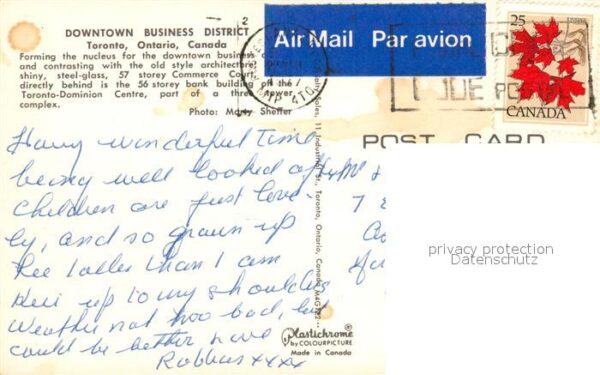 DOWNTOWN BUSINESS DISTRICT
Toronto, Ontario, Canada
Forming the nucleus for the downtown business
and contrasting with the old style architecture
shiny, steel-glass, 57 storey Commerce
directly behind is the 56 storey bank building of the
Toronto-Dominion Centre, part of a three tower
complex.
Photo: Marty Sheffer
Air Mail Par avion
25
CANADA
POST CARD
Having wonderful time
being well looked after
Children are just love-
ly, and so grown up
Lee taller than I am
Keri up to my shoulders
Weather not too bad, but
could be better here
xxxx
11 Industrial St., Toronto, Ontario, Canada M4G
Plastichrome
by COLOURPICTURE
Made in Canada
privacy protection
Datenschutz